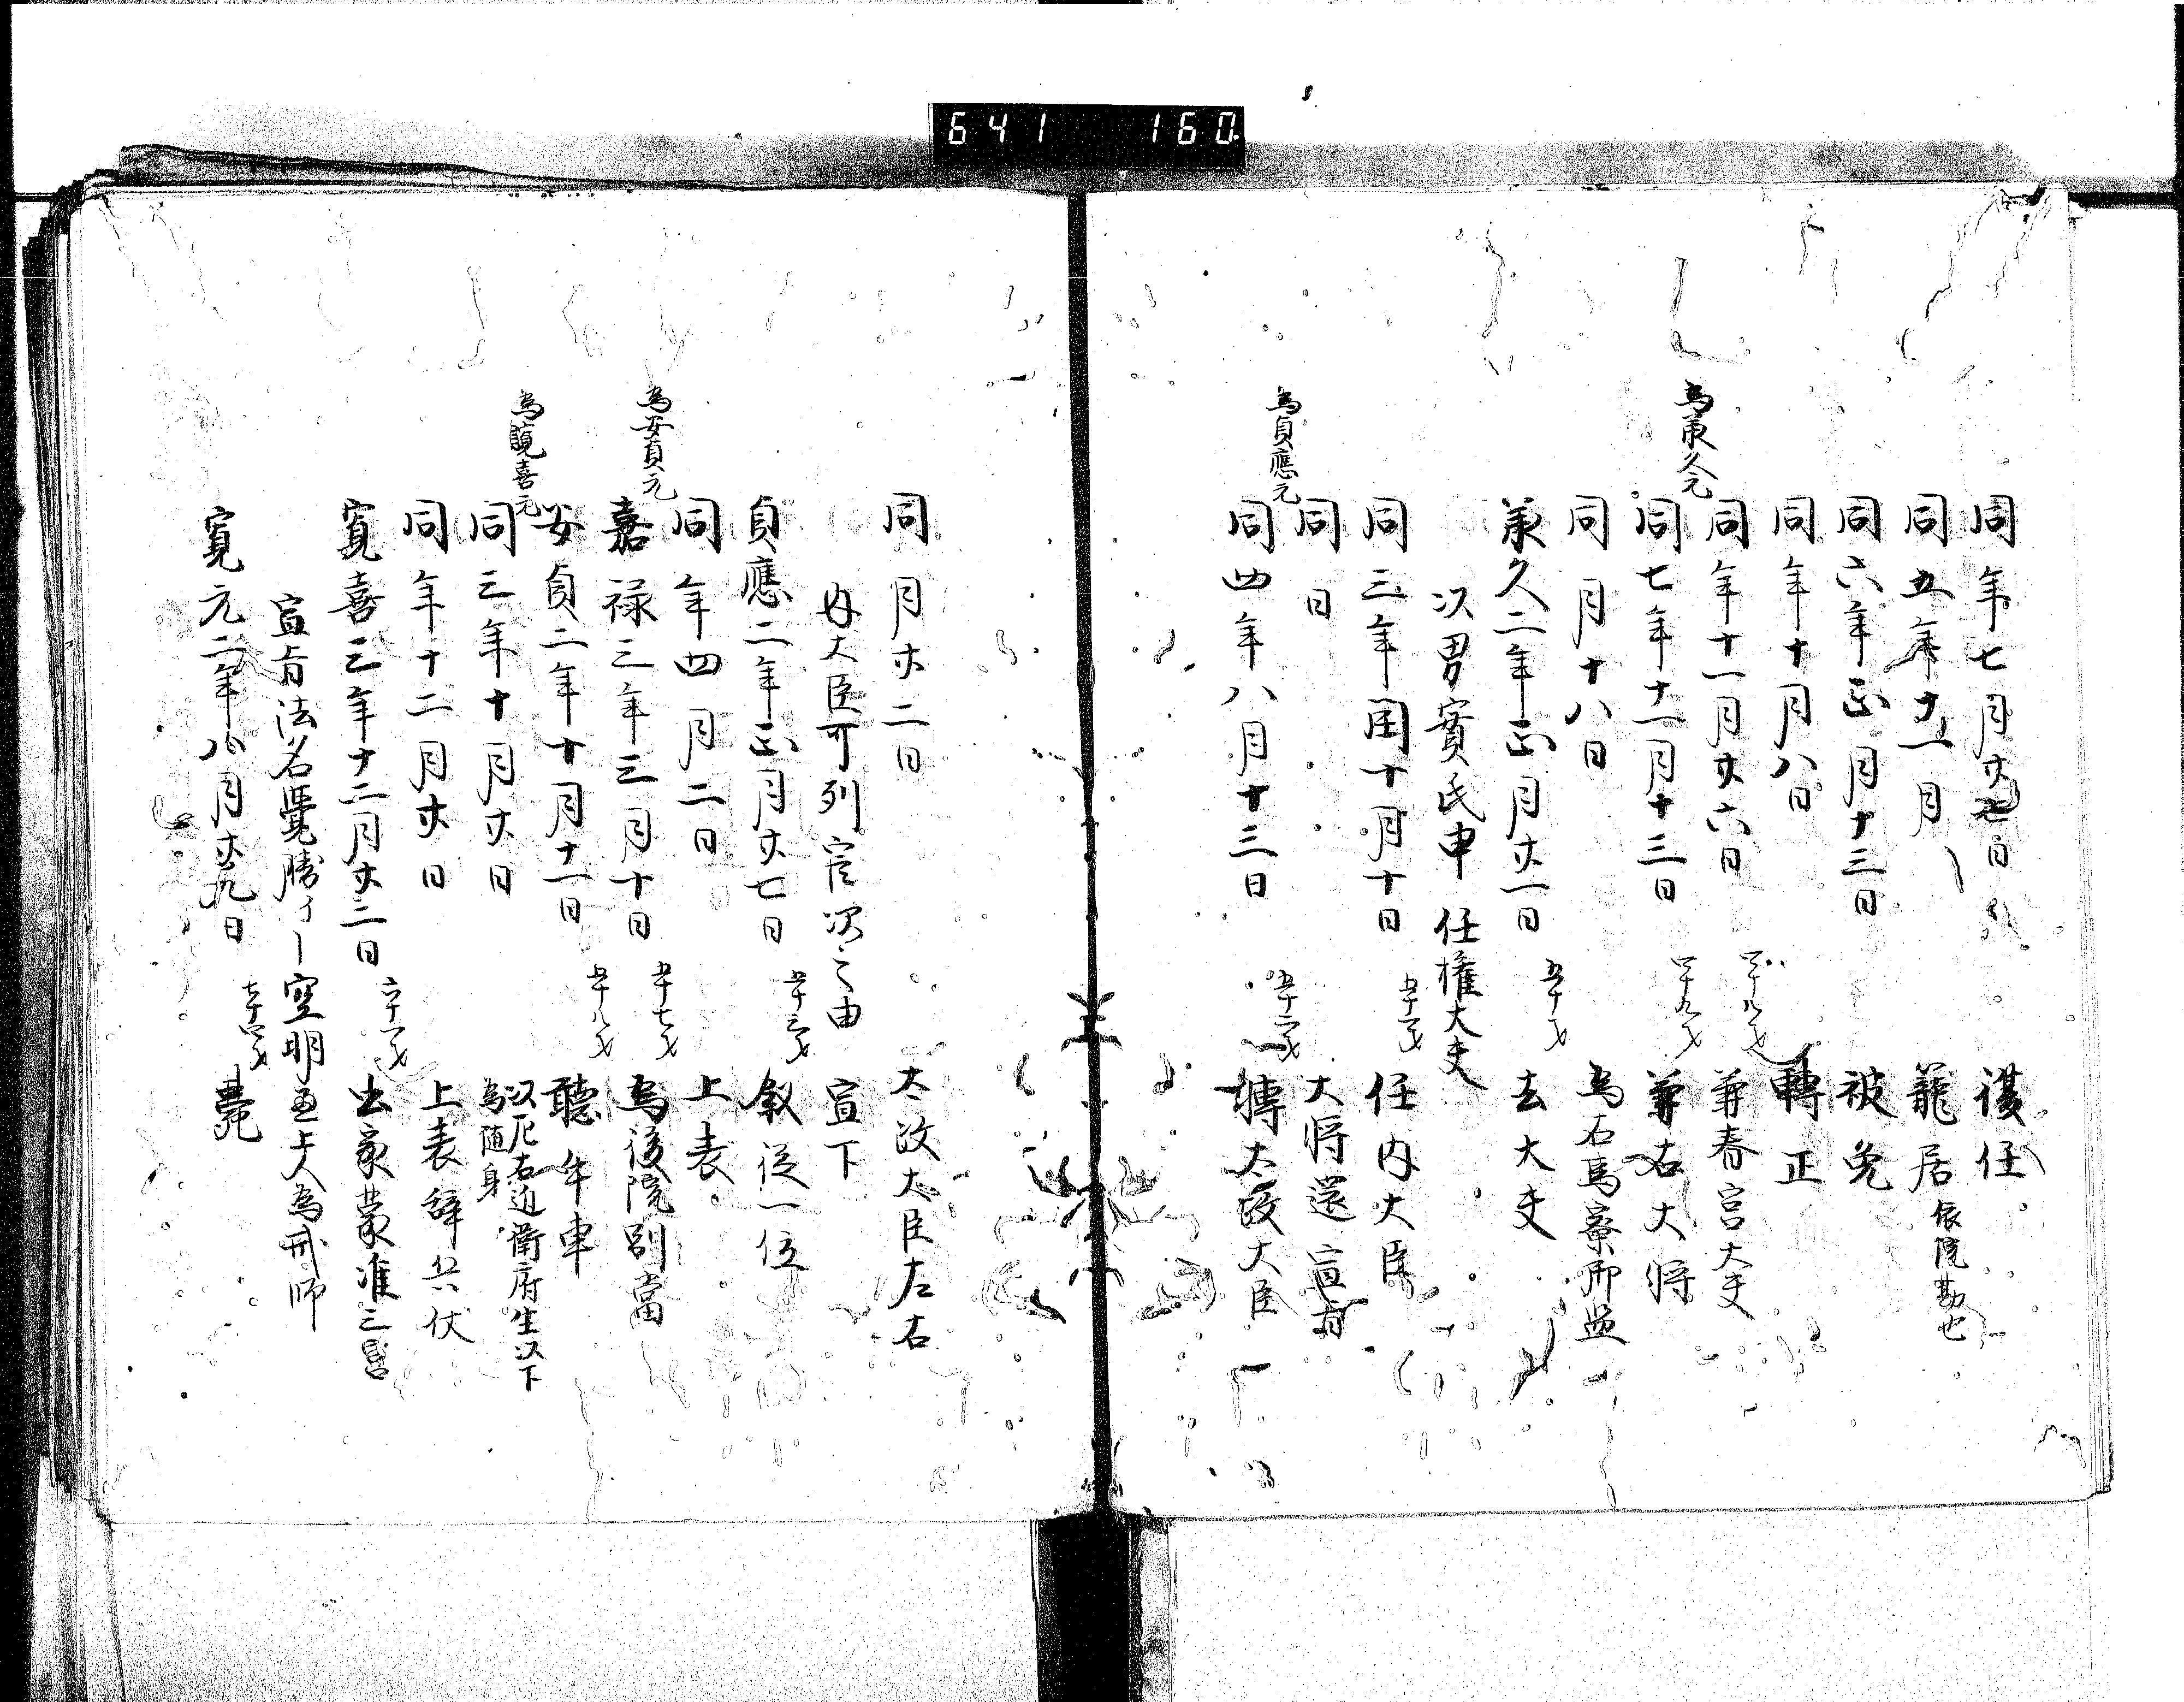 641 160
同年七月廿七日 復任
同五年十一月 籠居依院勘也
同六年正月十三日 被免
同年十月八日 轉正
同年十一月廿六日 四十八才 兼春宮大夫
為承久元
同七年十一月十三日 四十九才 兼右大将
同月十八日 為右馬寮御監
承久二年正月廿一日 五十才 去大夫
以男實氏申任權大夫
同三年閏十月十日 五十一才 任内大臣
同日 大将還宣旨
為貞應元
同四年八月十三日 五十二才 轉太政大臣
同月廿二日 太政大臣左右
内大臣可列官次之由 宣下
貞應二年正月廿七日 五十三才 叙従一位
同年四月二日 上表
為安貞元
嘉禄三年三月十日 五十七才 為後院別當
安貞二年十月十一日 五十八才 聽牛車
為寛喜元
同三年十月廿日 以左右近衛府生以下
為随身
同年十二月廿日 上表辞兵仗
寛喜三年十二月廿二日 六十一才 出家蒙准三宮
宣旨法名覺勝了 空明上人為戒師
寛元二年八月廿九日 七十四才 薨